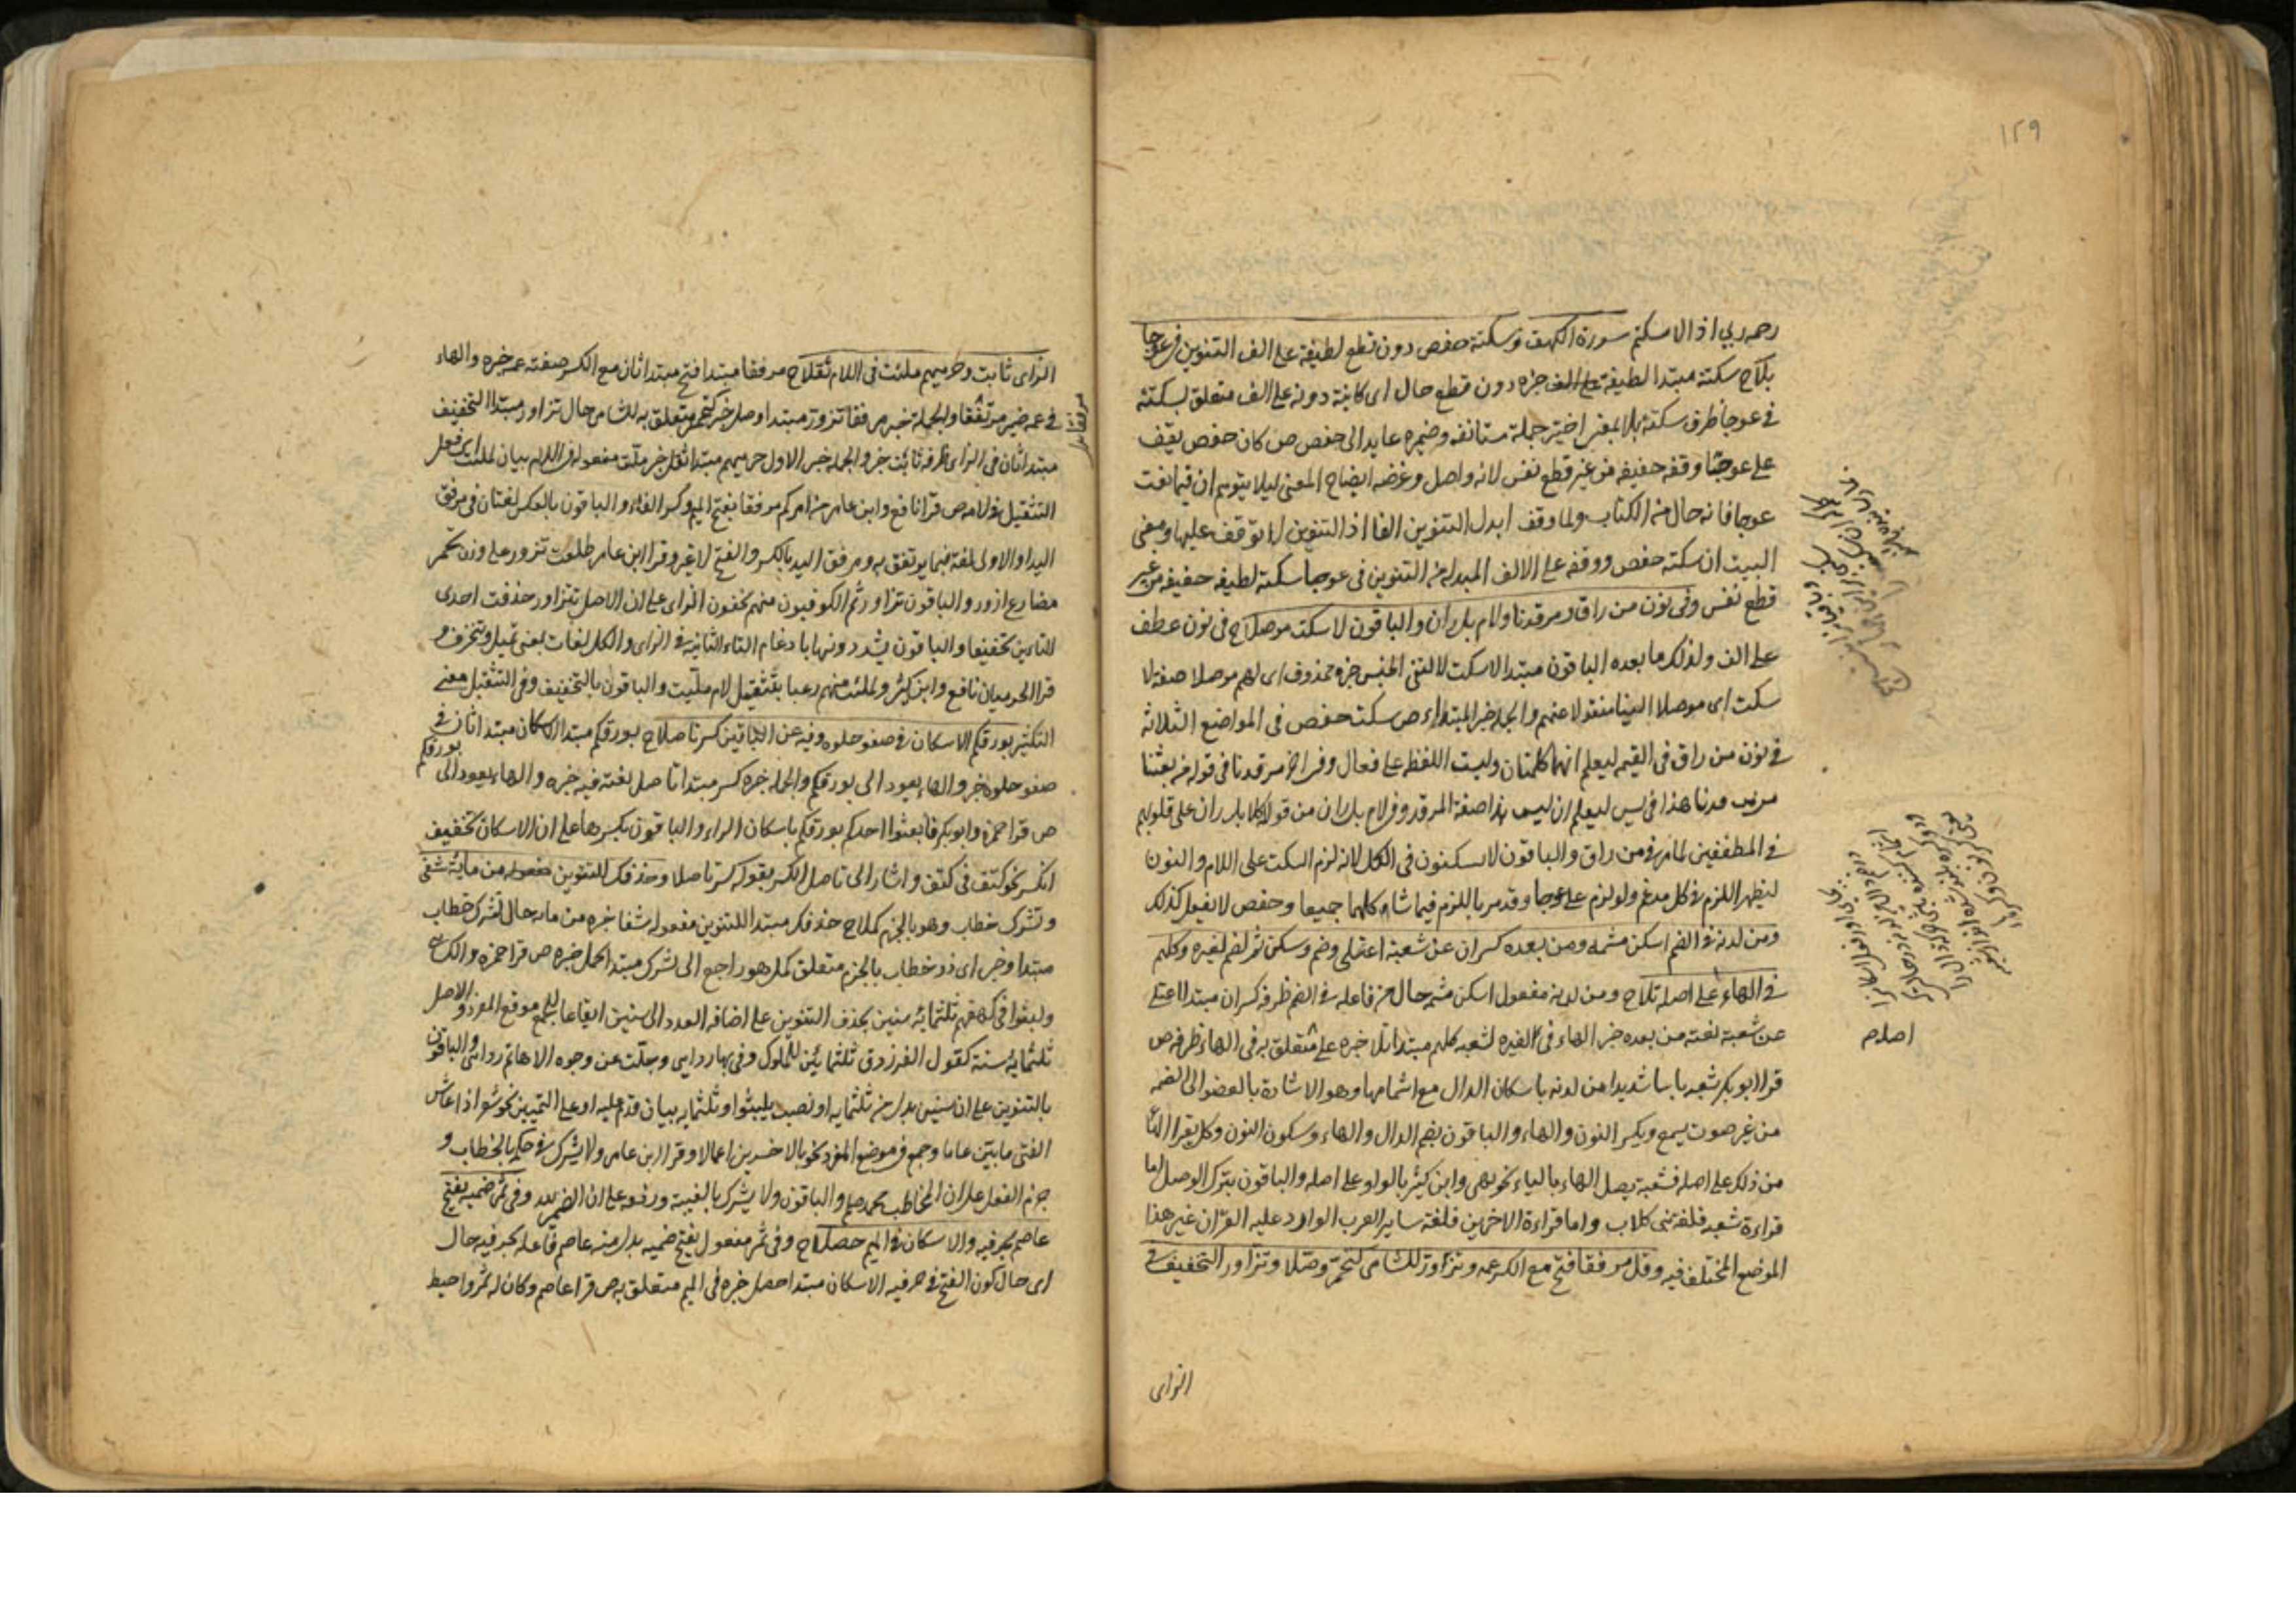 ١٢٩
رحمه ربى اذ الاسكنم سورة الكهف وسكتة حفص دون قطع لطيفة على الف التنوين فى عوجا
بلاح سكتة مبتدا لطيفة على الف خبره دون قطع حال اى كاينة دونه على الف متعلق بسكتة
فى عوجا ظرف سكتة بلا بمعنى اختبر جملة مستانفه وضميره عايد الى حفص ص كان حفص يقف
على عوجا وقفه خفيفه من غير قطع نفس لانه واصل وغرضه ايضاح المعنى ليلا يتوهم ان قيما نعت
عوجا فانه حال من الكتاب ولما وقف ابدل التنوين الفا اذ التنوين لا توقف عليها ومعنى
البيت ان سكتة حفص ووقفه على الالف المبدله من التنوين فى عوجا سكتة لطيفه خفيفه من غير
قطع نفس وفى نون من راق ومرقدنا ولام بل ران والباقون لا سكت موصلاح فى نون عطف
على الف ولذلك ما بعده الباقون مبتدا لا سكت لا لنفى الجنس خبره محذوف اى لهم موصلا صفة لا
سكت اى موصلا الينا منقولا عنهم والجملة خبر المبتدا ص سكت حفص فى المواضع الثلاثة
فى نون من راق فى القيمه ليعلم انهما كلمتان وليست اللفظه على فعال وفى الف مرقدنا فى قوله من بعثنا
من مرقدنا هذا فى يس ليعلم ان ليس هذا صفة المرقد وفى لام بل ران من قوله كلا بل ران على قلوبهم
فى المطففين لما مر فى من راق والباقون لا يسكتون فى الكل لانه لزم السكت على اللام والنون
ليظهر اللزم فى كل مدغم ولو لزم على عوجا وقد مر باللزم فيما شاكلهما جميعا وحفص لا يفعل كذلك
ومن لدنه فى الضم اسكن مشمه ومن بعده كسران عن شعبة اعتلى وضم وسكن ثم لضم لغيره وكلهم
فى الهاء على اصله تلاح ومن لدنه مفعول اسكن مشمه حال من فاعله فى الضم ظرفه كسران مبتدا اعتلى
عن شعبة نعته من بعده خبر الهاء فى لغيره لشعبه كلهم مبتدا تلا خبره على متعلق به فى الهاء ظرف ص
قرا ابو بكر شعبه باسا شديدا من لدنه باسكان الدال مع اشمامها وهو الاشارة بالعضو الى الضمه
من غير صوت يسمع وبكسر النون والهاء والباقون بضم الدال والهاء وسكون النون وكل يقرا الهاء
من ذلك على اصله فشعبة يصل الهاء بالياء نحو بهى وابن كثير بالواو على اصله والباقون بترك الوصل اما
قراءة شعبه فلغة بنى كلاب واما قراءة الاخرين فلغة ساير العرب الوارد عليه القران غير هذا
الموضع المختلف فيه وقل مرفقا فتح مع الكسر عمه وتزاور للشامى كتحمر وصلا وتزاور التخفيف فى
الزاى
اصلام
الزاى ثابت وحرميهم ملئت فى اللام ثقلاح مرفقا مبتدا فتح مبتدا ثان مع الكسر صفته عمه خبره والهاء
فى عمه ضمير مرفقا والجملة خبر مرفقا تزور مبتدا وصل خبر كتحمر متعلق به للشامى حال تزاور مبتدا التخفيف
مبتدا ثان فى الزاى ظرفه ثابت خبر والجملة خبر الاول حرميهم مبتدا ثقل خبر ملئت مفعوله فى اللام بيان لملئت اى فعل
التثقيل فى لامه ص قرا نافع وابن عامر من امركم مرفقا بفتح الميم وكسر الفاء والباقون بالعكس لغتان فى مرفق
اليد او الاولى لغة فيما يرتفق به ومرفق اليد بالكسر والفتح لا غير وقرا ابن عامر طلعت تزور على وزن تحمر
مضارع ازور والباقون تزاور ثم الكوفيون منهم يخففون الزاى على ان الاصل تتزاور حذفت احدى
التاءين تخفيفا والباقون يشددونها بادغام التاء الثانية فى الزاى والكل لغات بمعنى تميل وتنحرف و
قرا الحرميان نافع وابن كثير ولملئت منهم رعبا بتثقيل لام ملئت والباقون بالتخفيف وفى التثقيل معنى
التكثير بورقكم الاسكان فى صفو حلوه وفيه عن الباقين كسر تاصلاح بورقكم مبتدا الاسكان مبتدا ثان فى
صفو حلوه خبر والهاء يعود الى بورقكم والجملة خبره كسر مبتدا تاصل نعته فيه خبره والهاء يعود الى بورقكم
ص قرا حمزة وابو بكر فابعثوا احدكم بورقكم باسكان الراء والباقون بكسرها على ان الاسكان تخفيف
الكسر نحو كتف فى كتف واشار الى تاصل الكسر بقوله كسر تاصلا وحذفك للتنوين من ماية شفى
وتشرك خطاب وهو بالجزم كملاح حذفك مبتدا للتنوين مفعوله شفا خبره من مايه حال تشرك خطاب
مبتدا وخبر اى ذو خطاب بالجزم متعلق كمل هو راجع الى تشرك مبتدا كمل خبره ص قرا حمزه والكساى
ولبثوا فى كهفهم ثلثماية سنين بحذف التنوين على اضافه العدد الى سنين ايقاعا للجمع موقع المفرد والاصل
ثلثماية سنة كقول الفرزدق ثلثمائين للملوك وفى بها ردايى وجلت عن وجوه الاهاتم ردائى والباقون
بالتنوين على ان سنين بدل من ثلثمايه او نصب بلبثوا وثلثمايه بيان قدم عليه او على التمييز نحو شعر اذا عاش
الفتى مايتين عاما وجمع فى موضع المفرد نحو بالاخسرين اعمالا وقرا ابن عامر ولا تشرك فى حكمه بالخطاب و
جزم الفعل على ان المخاطب محمد صلعم والباقون ولا يشرك بالغيبة ورفعه على ان الضمير لله وفى ثمر ضميه بفتح
عاصم بحرفيه والاسكان فى الميم حصلاح وفى ثمر مفعول بفتح ضميه بدل منه عاصم فاعله بحرفيه حال
اى حال كون الفتح فى حرفيه الاسكان مبتدا حصل خبره فى الميم متعلق به ص قرا عاصم وكان له ثمر واحيط